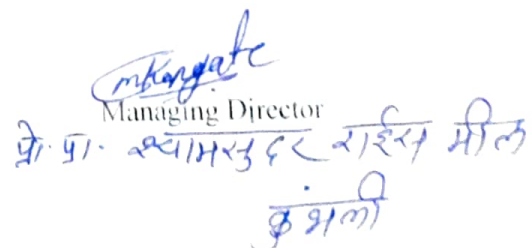 mkongate
Managing Director
प्रो. प्रा. श्यामसुंदर राईस मील
कुंभली